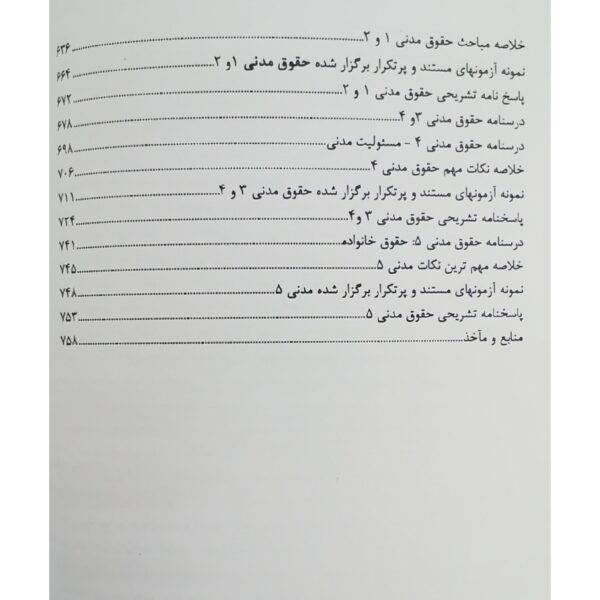 خلاصه مباحث حقوق مدنی ۱ و ۲........۶۳۶
نمونه آزمونهای مستند و پرتکرار برگزار شده حقوق مدنی ۱و ۲........۶۶۴
پاسخ نامه تشریحی حقوق مدنی ۱ و ۲........۶۷۲
درسنامه حقوق مدنی ۳و ۴........۶۷۸
درسنامه حقوق مدنی ۴ - مسئولیت مدنی........۶۹۸
خلاصه نکات مهم حقوق مدنی ۴........۷۰۶
نمونه آزمونهای مستند و پرتکرار برگزار شده حقوق مدنی ۳ و ۴........۷۱۱
پاسخنامه تشریحی حقوق مدنی ۳ و۴........۷۲۴
درسنامه حقوق مدنی ۵: حقوق خانواده........۷۴۱
خلاصه مهم ترین نکات مدنی ۵........۷۴۵
نمونه آزمونهای مستند و پرتکرار برگزار شده مدنی ۵........۷۴۸
پاسخنامه تشریحی حقوق مدنی ۵........۷۵۳
منابع و مآخذ........۷۵۸